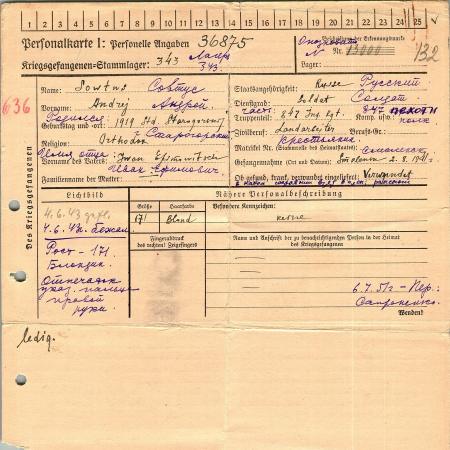 1 2 3 4 5 6 7 8 9 10 11 12 13 14 15 16 17 18 19 20 21 22 23 24 25
Personalkarte I: Personelle Angaben 36875
Beschriftung der Erkennungsmarke
Kriegsgefangenen-Stammlager: 343 Лагр 343.
Nr. 13000
132
Lager:
636
Des Kriegsgefangenen
Name: Sowtus Совтус
Vorname: Andrej Андрей
Родился
Geburtstag und -ort: 1919
г. Старогорский
Religion: Orthodox
Имя отца
Vorname des Vaters: Iwan Efimowitsch
Иван Ефимович.
Familienname der Mutter:
Staatsangehörigkeit: Russe Русский
Dienstgrad: Soldat Солдат
Truppenteil: 847 Inf. Rgt. 847
часть: Komp. usw.: полк
Zivilberuf: Landarbeiter Berufs-Gr.:
крестьянин
Matrikel Nr. (Stammrolle des Heimatstaates):
Смоленск
Gefangennahme (Ort und Datum): Smolensk 2.8.1941
Ob gesund, krank, verwundet eingeliefert: Verwundet
Lichtbild
Nähere Personalbeschreibung
4.6.43
4.6.43. бежал
Рост - 171.
Блондин.
Отпечаток
указ. пальца
правой
руки.
Größe
Haarfarbe
Besondere Kennzeichen:
171
Blond
keine
Fingerabdruck
des rechten! Zeigefingers
Name und Anschrift der zu benachrichtigenden Person in der Heimat
des Kriegsgefangenen
6.7.51г - Пер:
Сапроненко.
Wenden!
ledig.